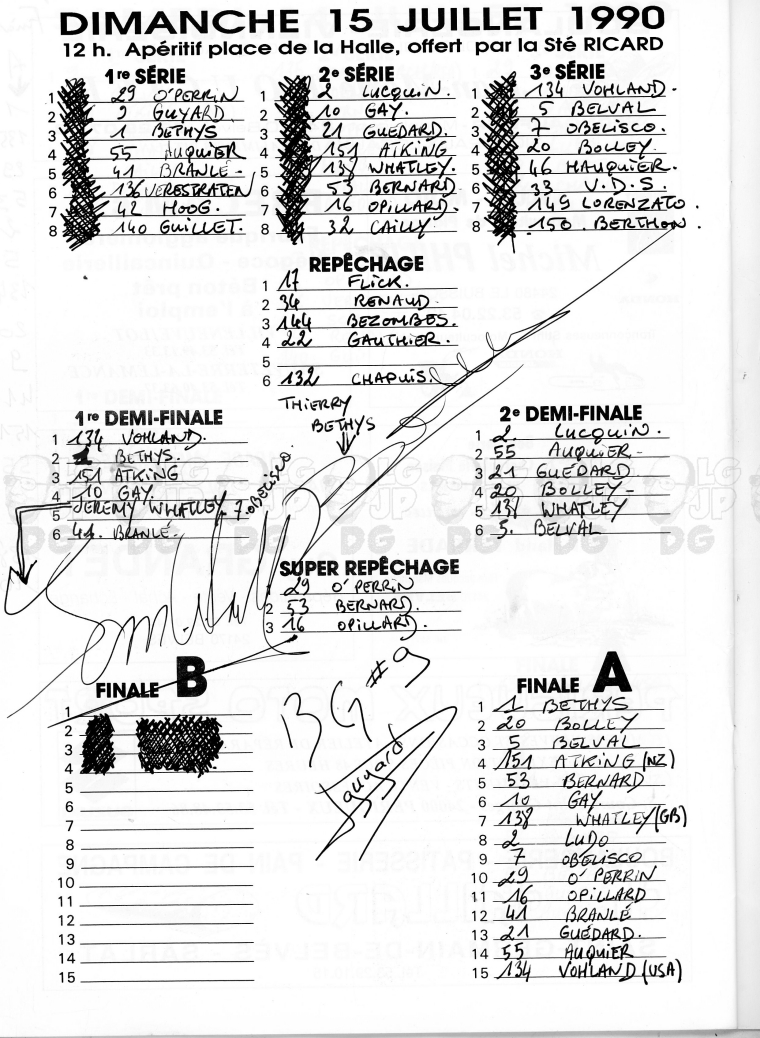 DIMANCHE 15 JUILLET 1990
12 h. Apéritif place de la Halle, offert par la Sté RICARD
1re SÉRIE
1 29 O'PERRIN
2 9 GUYARD
3 1 BETHYS
4 55 AUQUIER
5 41 BRANLÉ-
6 136 VERESTRATEN
7 42 HOOG.
8 140 GUILLET.
2e SÉRIE
1 2 LUCQUIN.
2 10 GAY.
3 21 GUÉDARD.
4 151 ATKING
5 138 WHATLEY.
6 53 BERNARD
7 16 OPILLARD.
8 32 CAILLY.
3e SÉRIE
1 134 VOHLAND.
2 5 BELVAL
3 7 OBELISCO.
4 20 BOLLEY.
5 46 HAUQUIER.
6 33 V.D.S.
7 149 LORENZATO.
8 150 BERTHON.
REPÊCHAGE
1 17 FLICK.
2 34 RENAUD.
3 144 BEZOMBES.
4 22 GAUTHIER.
5
6 132 CHAPUIS.
THIERRY
BETHYS
1re DEMI-FINALE
1 134 VOHLAND.
2 1 BETHYS.
3 151 ATKING
4 10 GAY.
5 JEREMY WHATLEY 7 OBELISCO.
6 41. BRANLÉ.
2e DEMI-FINALE
1 2. LUCQUIN.
2 55 AUQUIER-
3 21 GUÉDARD
4 20 BOLLEY-
5 138 WHATLEY
6 5. BELVAL
LG
JP
DG
SUPER REPÊCHAGE
1 29 O'PERRIN
2 53 BERNARD.
3 16 OPILLARD.
BG #9
FINALE B
1
2
3
4
5
6
7
8
9
10
11
12
13
14
15
FINALE A
1 1 BETHYS
2 20 BOLLEY
3 5 BELVAL
4 151 ATKING (NZ)
5 53 BERNARD
6 10 GAY.
7 138 WHATLEY (GB)
8 2 LUDO
9 7 OBELISCO
10 29 O'PERRIN
11 16 OPILLARD
12 41 BRANLÉ
13 21 GUÉDARD.
14 55 AUQUIER
15 134 VOHLAND (USA)